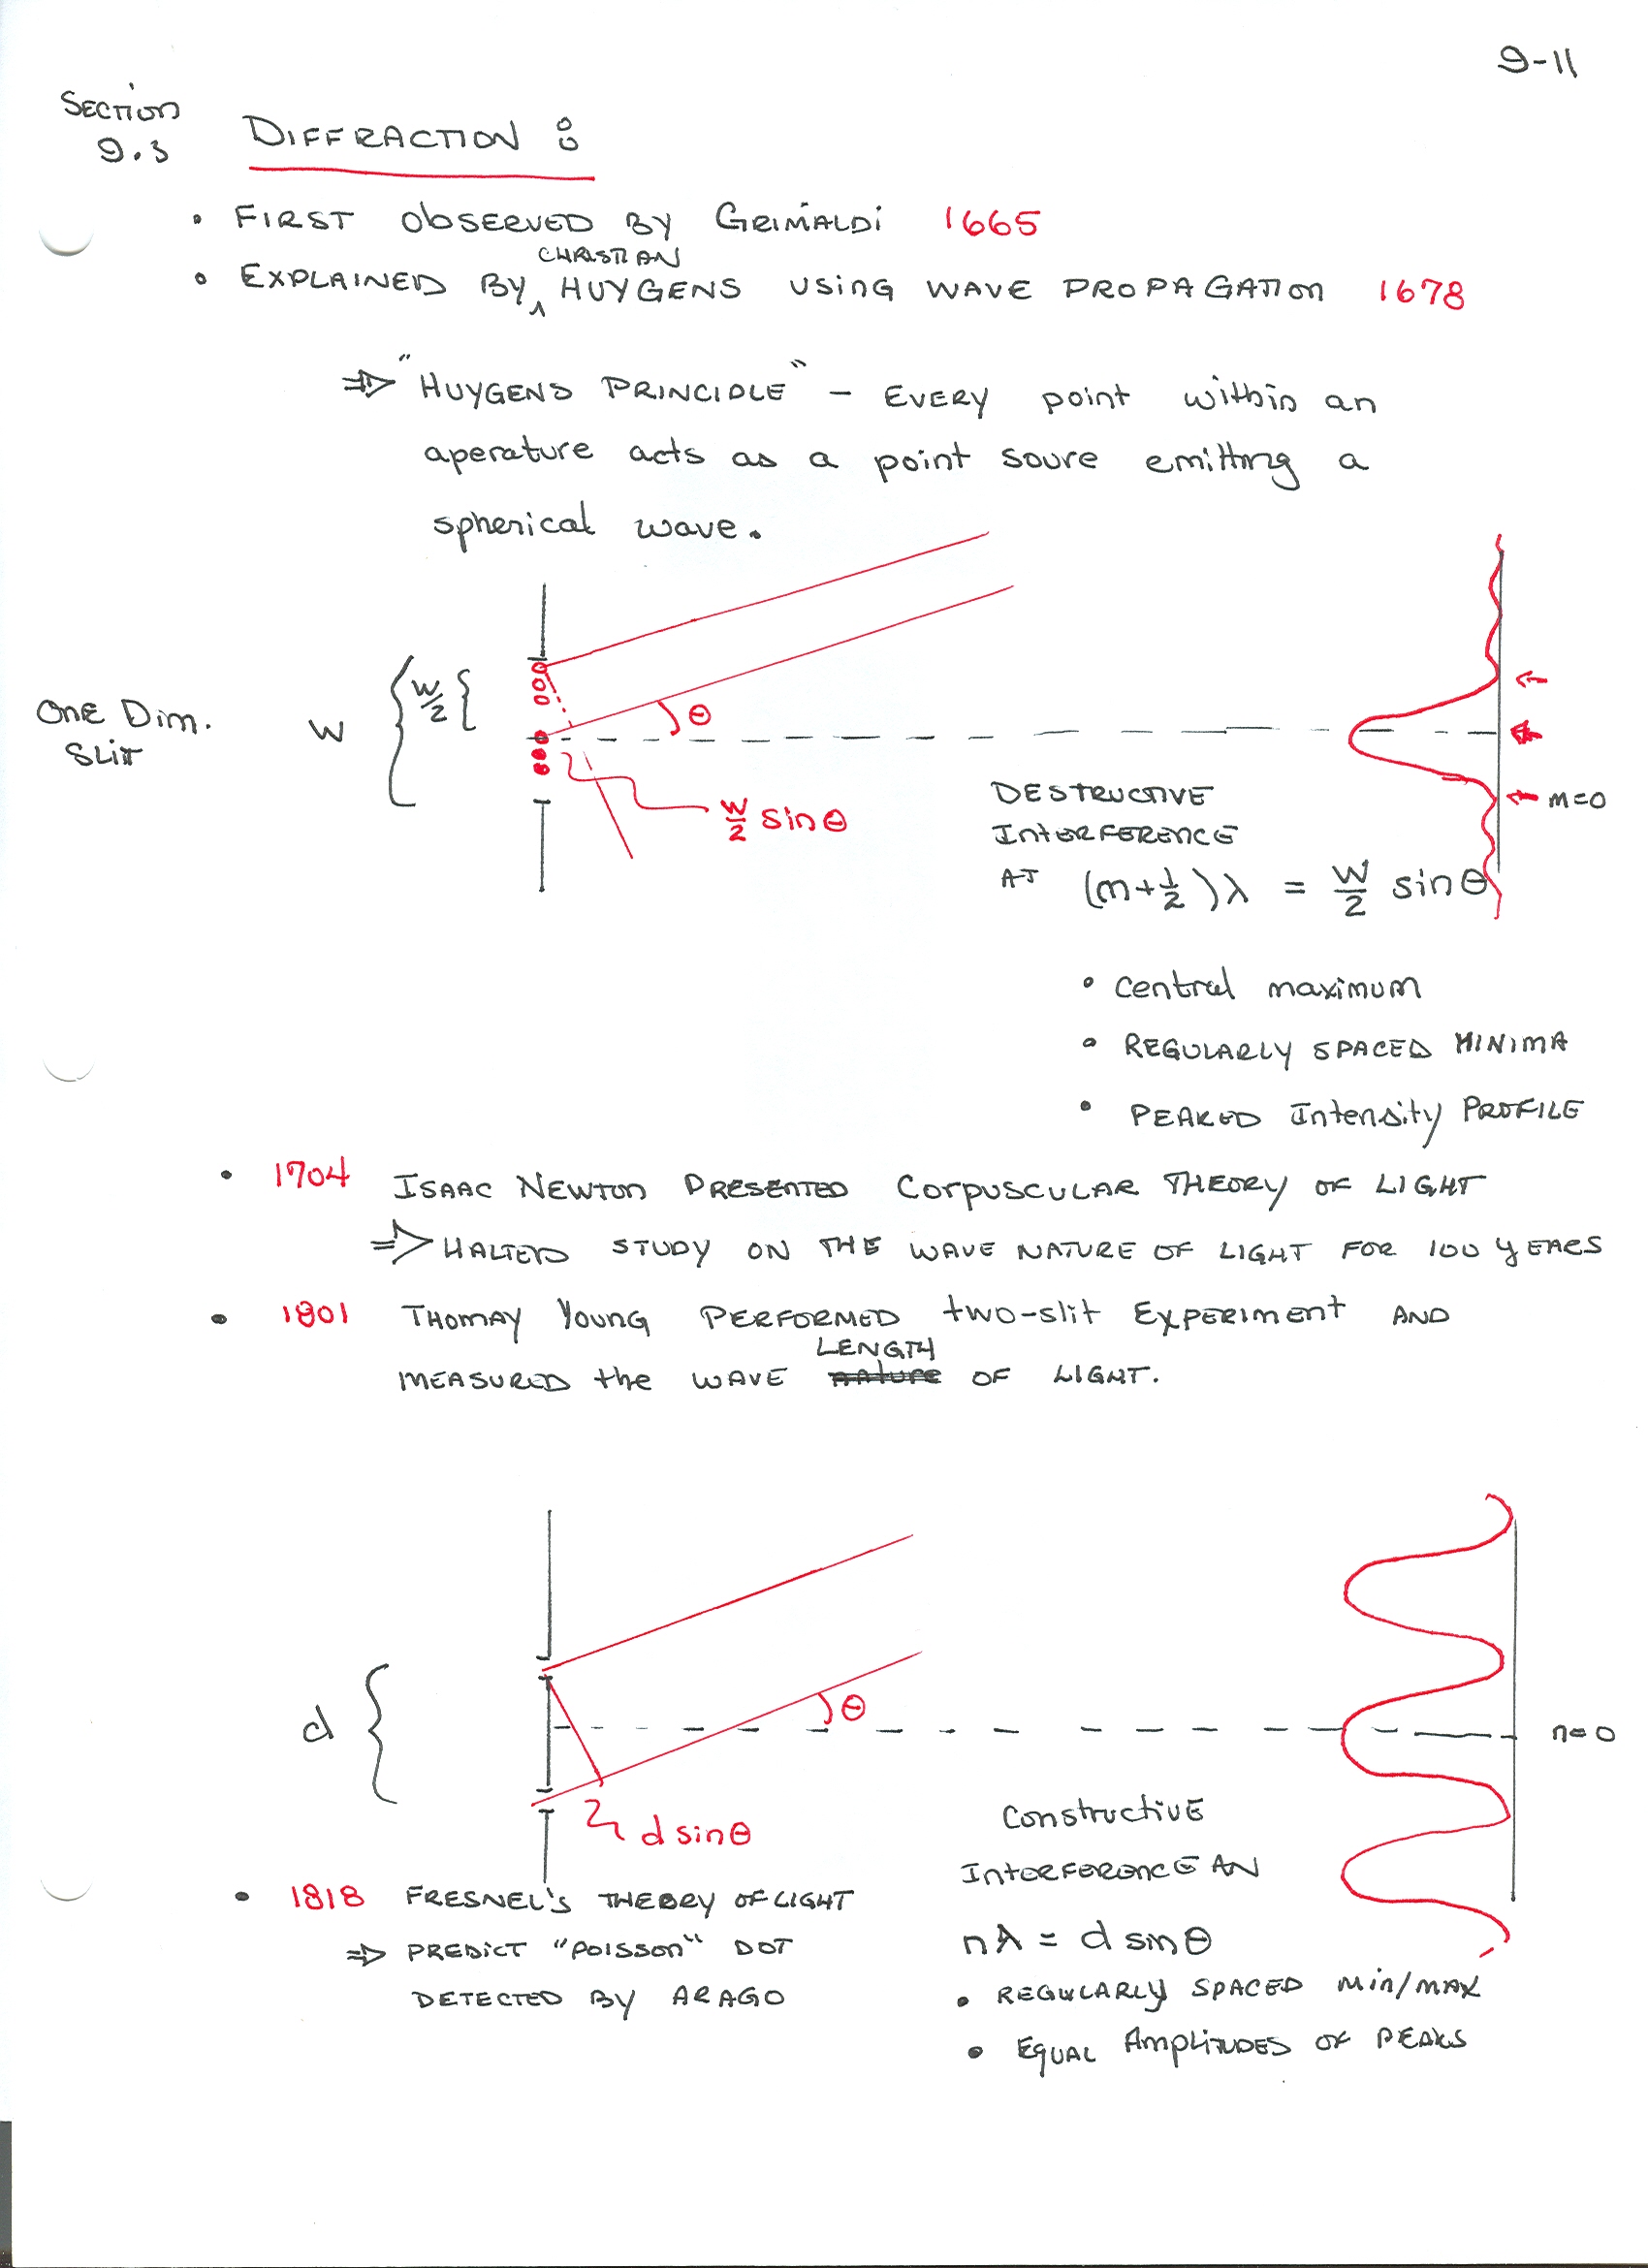 9-11
Section
9.3
DIFFRACTION :
• FIRST ObSERVED BY GRIMALDI 1665
CHRISTIAN
• EXPLAINED BY ^ HUYGENS USING WAVE PROPAGATION 1678
⇒ "HUYGENS PRINCIPLE" - EVERY point within an
aperature acts as a point soure emitting a
spherical wave.
One Dim.
Slit
W
W/2
θ
W/2 sin θ
m=0
DESTRUCTIVE
INTERFERENCE
AT (m+1/2)λ = W/2 sin θ
• Central maximum
• REGULARLY SPACED MINIMA
• PEAKED Intensity PROFILE
• 1704 ISAAC NEWTON PRESENTED Corpuscular THEORY OF LIGHT
⇒ HALTED STUDY ON THE WAVE NATURE OF LIGHT FOR 100 YEARS
• 1801 THOMAY YOUNG PERFORMED two-slit EXPERIMENT AND
LENGTH
MEASURED the WAVE nature OF LIGHT.
d
θ
d sin θ
n=0
Constructive
INTERFERENCE AN
nλ = d sin θ
• REGULARLY SPACED Min/MAX
• EQUAL AMPLITUDES OF PEAKS
• 1818 FRESNEL'S THEORY OF LIGHT
⇒ PREDICT "POISSON" DOT
DETECTED BY ARAGO